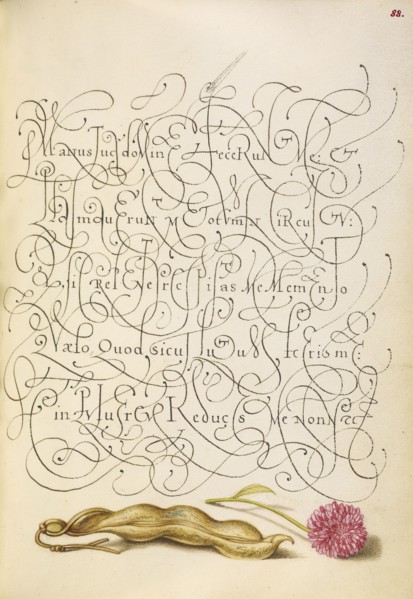 88.
Manus Tuæ Domine fecerunt Me: ET
Me totum IN CIRcuiTu:
si RepENte Me MemenTo
Quæso, Quod sicut Lutum fecERis me:
in PulvEREM Reduces ME NonNe